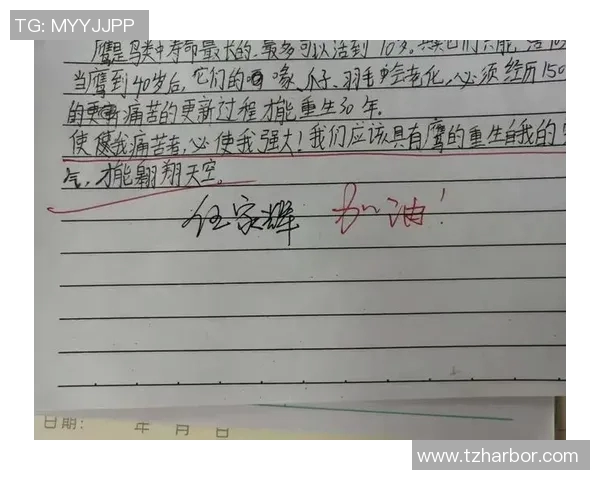 TG: MYYJJPP
鹰是鸟类中寿命最大的,最多可以活到70岁。其实它们只能活
当鹰到40岁后,它们的喙、爪子、羽毛会老化,必须经历150
的更新痛苦的更新过程才能重生30年。
使我痛苦者,必使我强大!我们应该具有鹰的重生自我的
气,才能翱翔天空。
任家辉 加油!
日期: 年 月 日
www.tzharbor.com